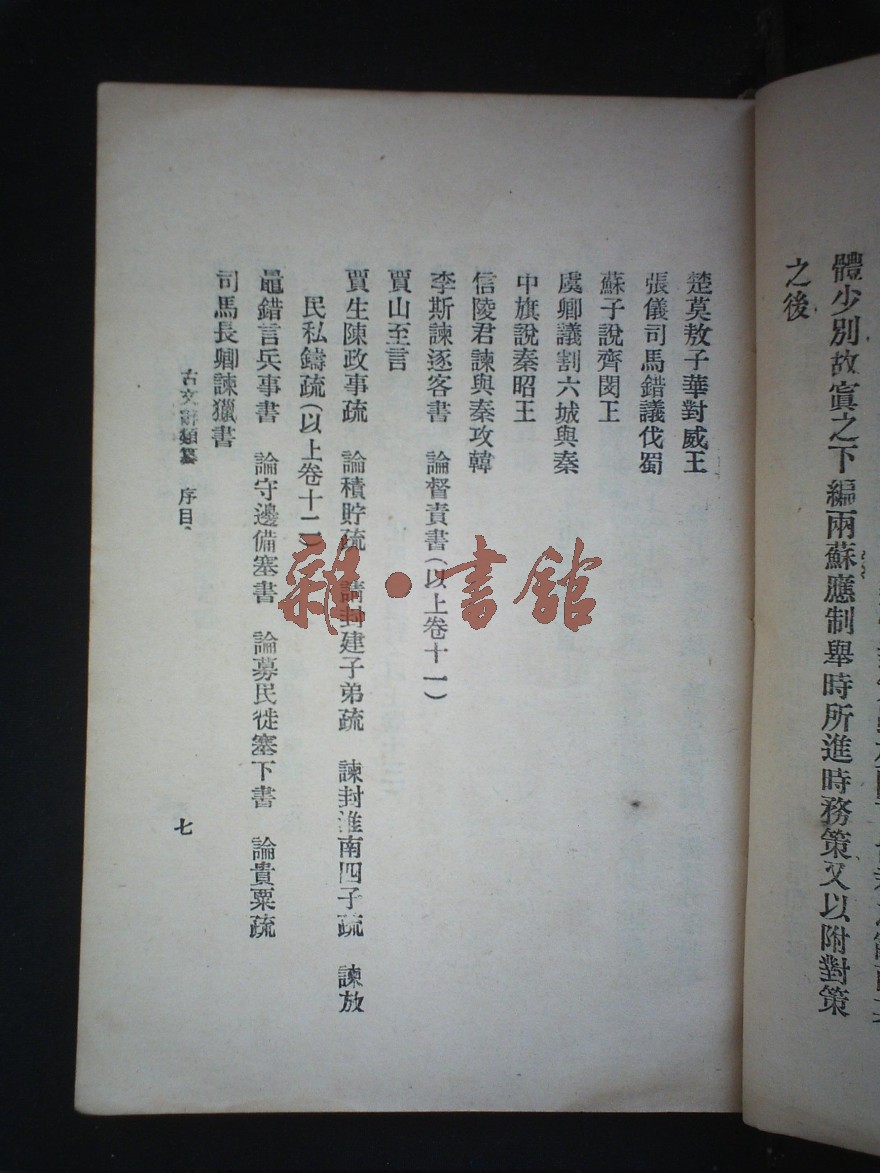 體少別故寘之下編兩蘇應制舉時所進時務策又以附對策
之後
楚莫敖子華對威王
張儀司馬錯議伐蜀
蘇子說齊閔王
虞卿議割六城與秦
中旗說秦昭王
信陵君諫與秦攻韓
李斯諫逐客書　論督責書(以上卷十一)
賈山至言
賈生陳政事疏　論積貯疏　請封建子弟疏　諫封淮南四子疏　諫放
民私鑄疏(以上卷十二)
鼂錯言兵事書　論守邊備塞書　論募民徙塞下書　論貴粟疏
司馬長卿諫獵書
古文辭類纂　序目
七
雜·書館